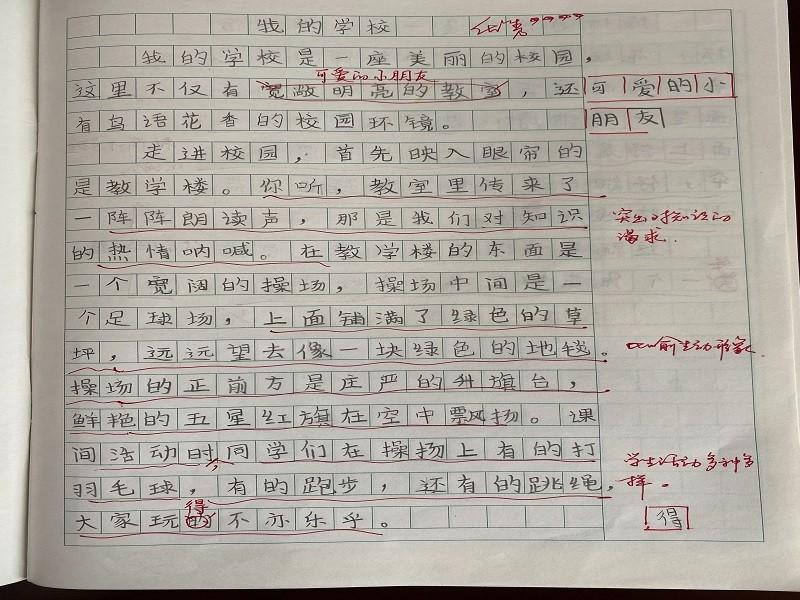 我的学校
我的学校是一座美丽的校园，
可爱的小朋友
这里不仅有宽敞明亮的教室，还
可爱的小
有鸟语花香的校园环镜。
朋友
走进校园，首先映入眼帘的
是教学楼。你听，教室里传来了
一阵阵朗读声，那是我们对知识
突出对知识的
渴求.
的热情呐喊。在教学楼的东面是
一个宽阔的操场，操场中间是一
个足球场，上面铺满了绿色的草
坪，远远望去像一块绿色的地毯。
比喻生动形象
操场的正前方是庄严的升旗台，
鲜艳的五星红旗在空中飘扬。课
间活动时，同学们在操场上有的打
学生活动多种多
样。
羽毛球，有的跑步，还有的跳绳，
得
大家玩的不亦乐乎。
得